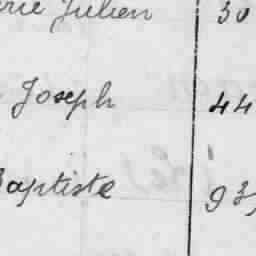 Julien 30
Joseph 44
Baptiste 93